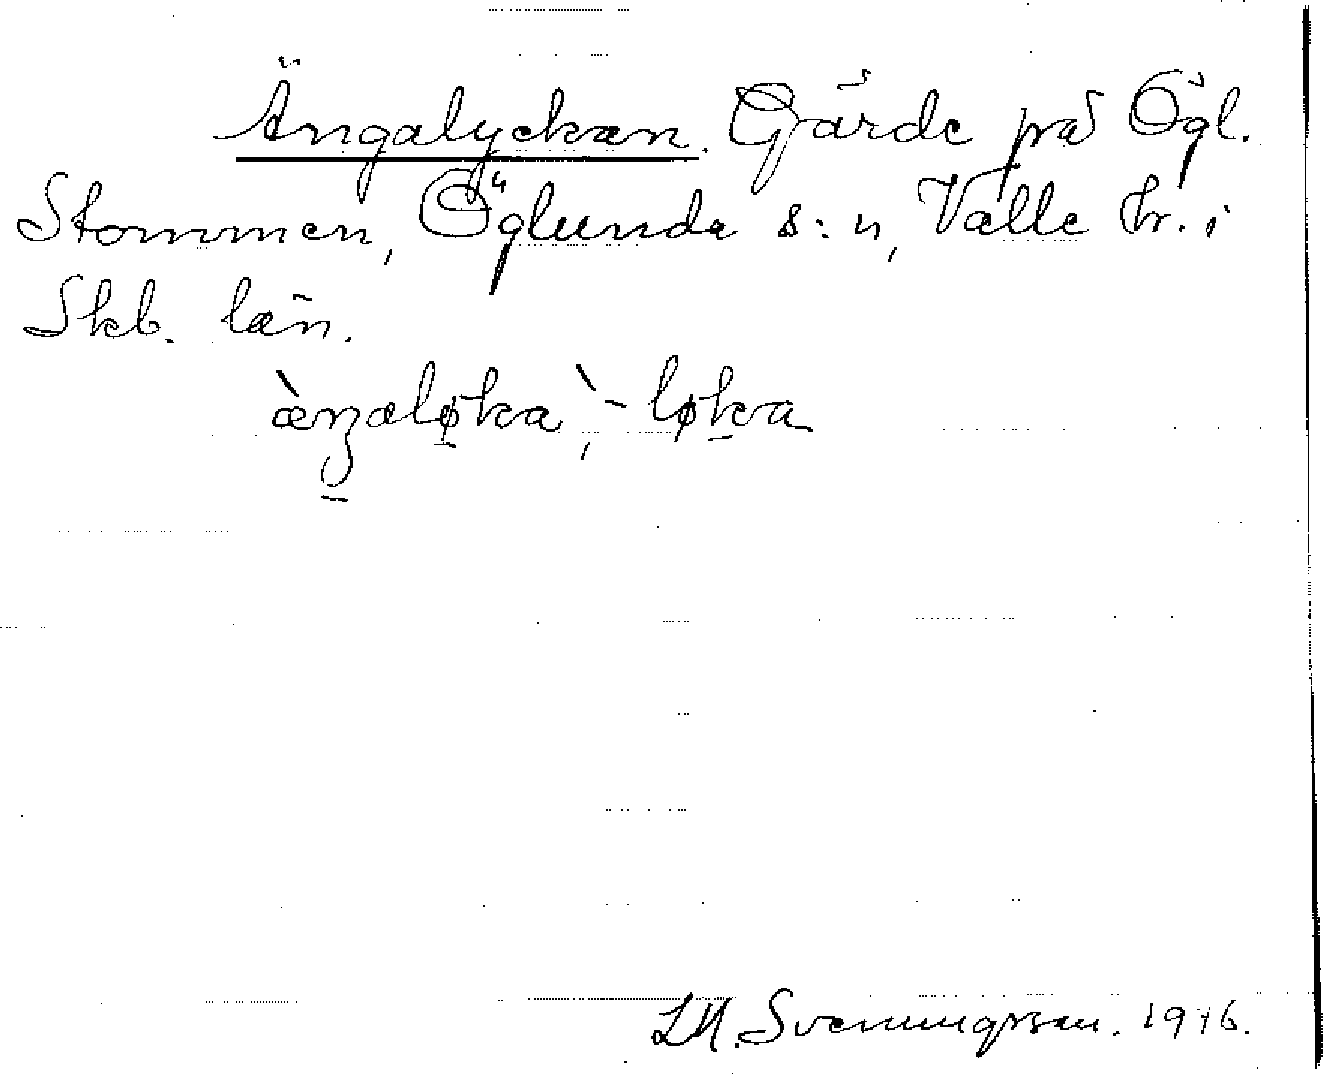 Ängalyckan. Gärde på Ögl.
Stommen, Öglunda s:n, Valle hr. i
Skb. län.
àŋaløka, `-løka
L.M. Svenungsson. 1946.